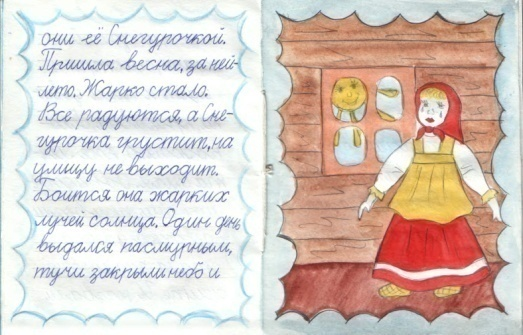 они её Снегурочкой.
Пришла весна, за ней-
лето. Жарко стало.
Все радуются, а Сне-
гурочка грустит, на
улицу не выходит.
Боится она жарких
лучей солнца. Один день
выдался пасмурным,
тучи закрыли небо и